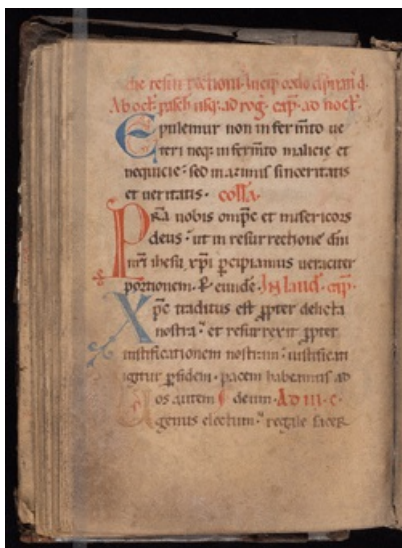 Ab oct' pasch usq; ad rog. cap. ad noct'.
Epulemur non inferm̄to ue
teri neq; in ferm̄to malicie et
nequicie: sed in azimis sinceritatis
et ueritatis. coll̄a.
nobis om̄ps et misericors
deus: ut in resurrectione dn̄i
nr̄i ihesu xp̄i percipiamus ueraciter
portionem. P eundē. In laud'. cap.
Xp̄c traditus est propter delicta
nostra: et resurrexit propter
iustificationem nostram: iustificati
igitur p fidem. pacem habeamus ad
deum. Ad iii. c.
os autem
genus electum: regale sacer